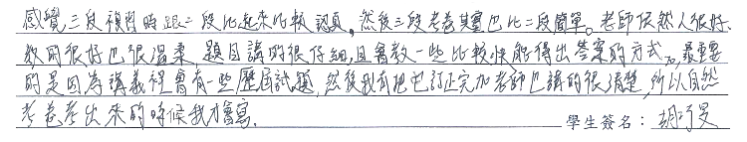 感覺三段複習時跟二段比起來比較認真,然後三段考卷其實也比二段簡單。老師依然人很好、
教的很好也很溫柔,題目講的很仔細,且會教一些比較快能得出答案的方式。最重要
的是因為講義裡會有一些歷屆試題,然後我有把它訂正完加老師也講的很清楚,所以自然
考卷考出來的時候我才會寫。
學生簽名:胡